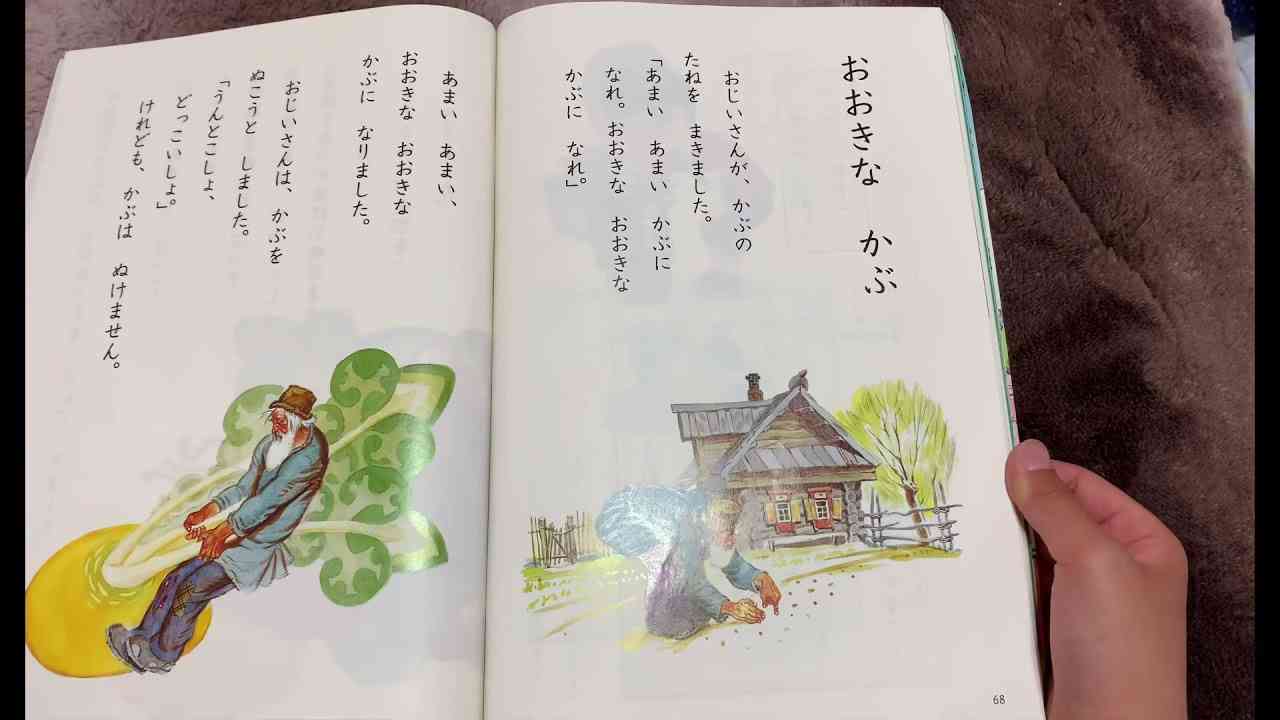 おおきな　かぶ
おじいさんが、かぶの
たねを　まきました。
「あまい　あまい　かぶに
なれ。おおきな　おおきな
かぶに　なれ」
68
あまい　あまい、
おおきな　おおきな
かぶに　なりました。
おじいさんは、かぶを
ぬこうと　しました。
「うんとこしょ、
どっこいしょ。」
けれども、かぶは　ぬけません。